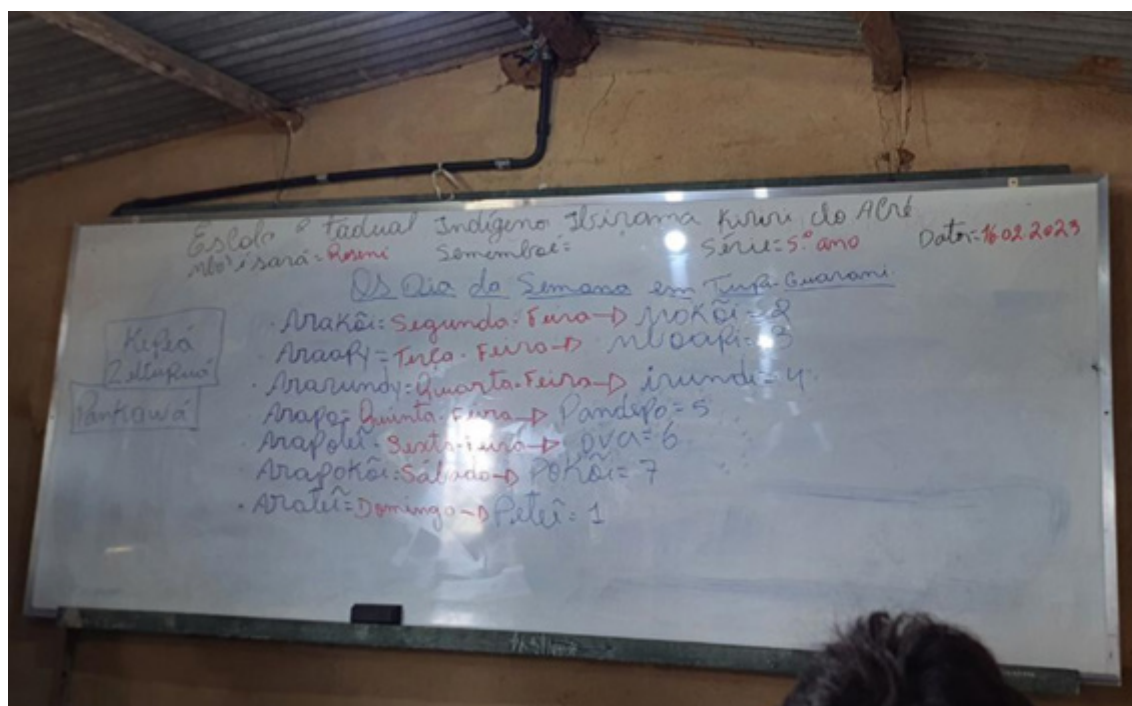 Escola Estadual Indígena Ibirama Kiriri do Acré
mbo'esara = Roseni Sememboe = Série = 5.º ano Data = 16.02.2023
Os Dia da Semana em Tupi-Guarani
Kipeá
Zattupuá
Pankawá
Arakõi = Segunda-Feira → Mokõi = 2
Araapy = Terça-Feira → Mboapi = 3
Ararundy = Quarta-Feira → irundi = 4
Arapo = Quinta-Feira → Pandepo = 5
Arapoteĩ = Sexta-Feira → ova = 6
Arapokõi = Sábado → Pokõi = 7
Arateĩ = Domingo → Peteĩ = 1